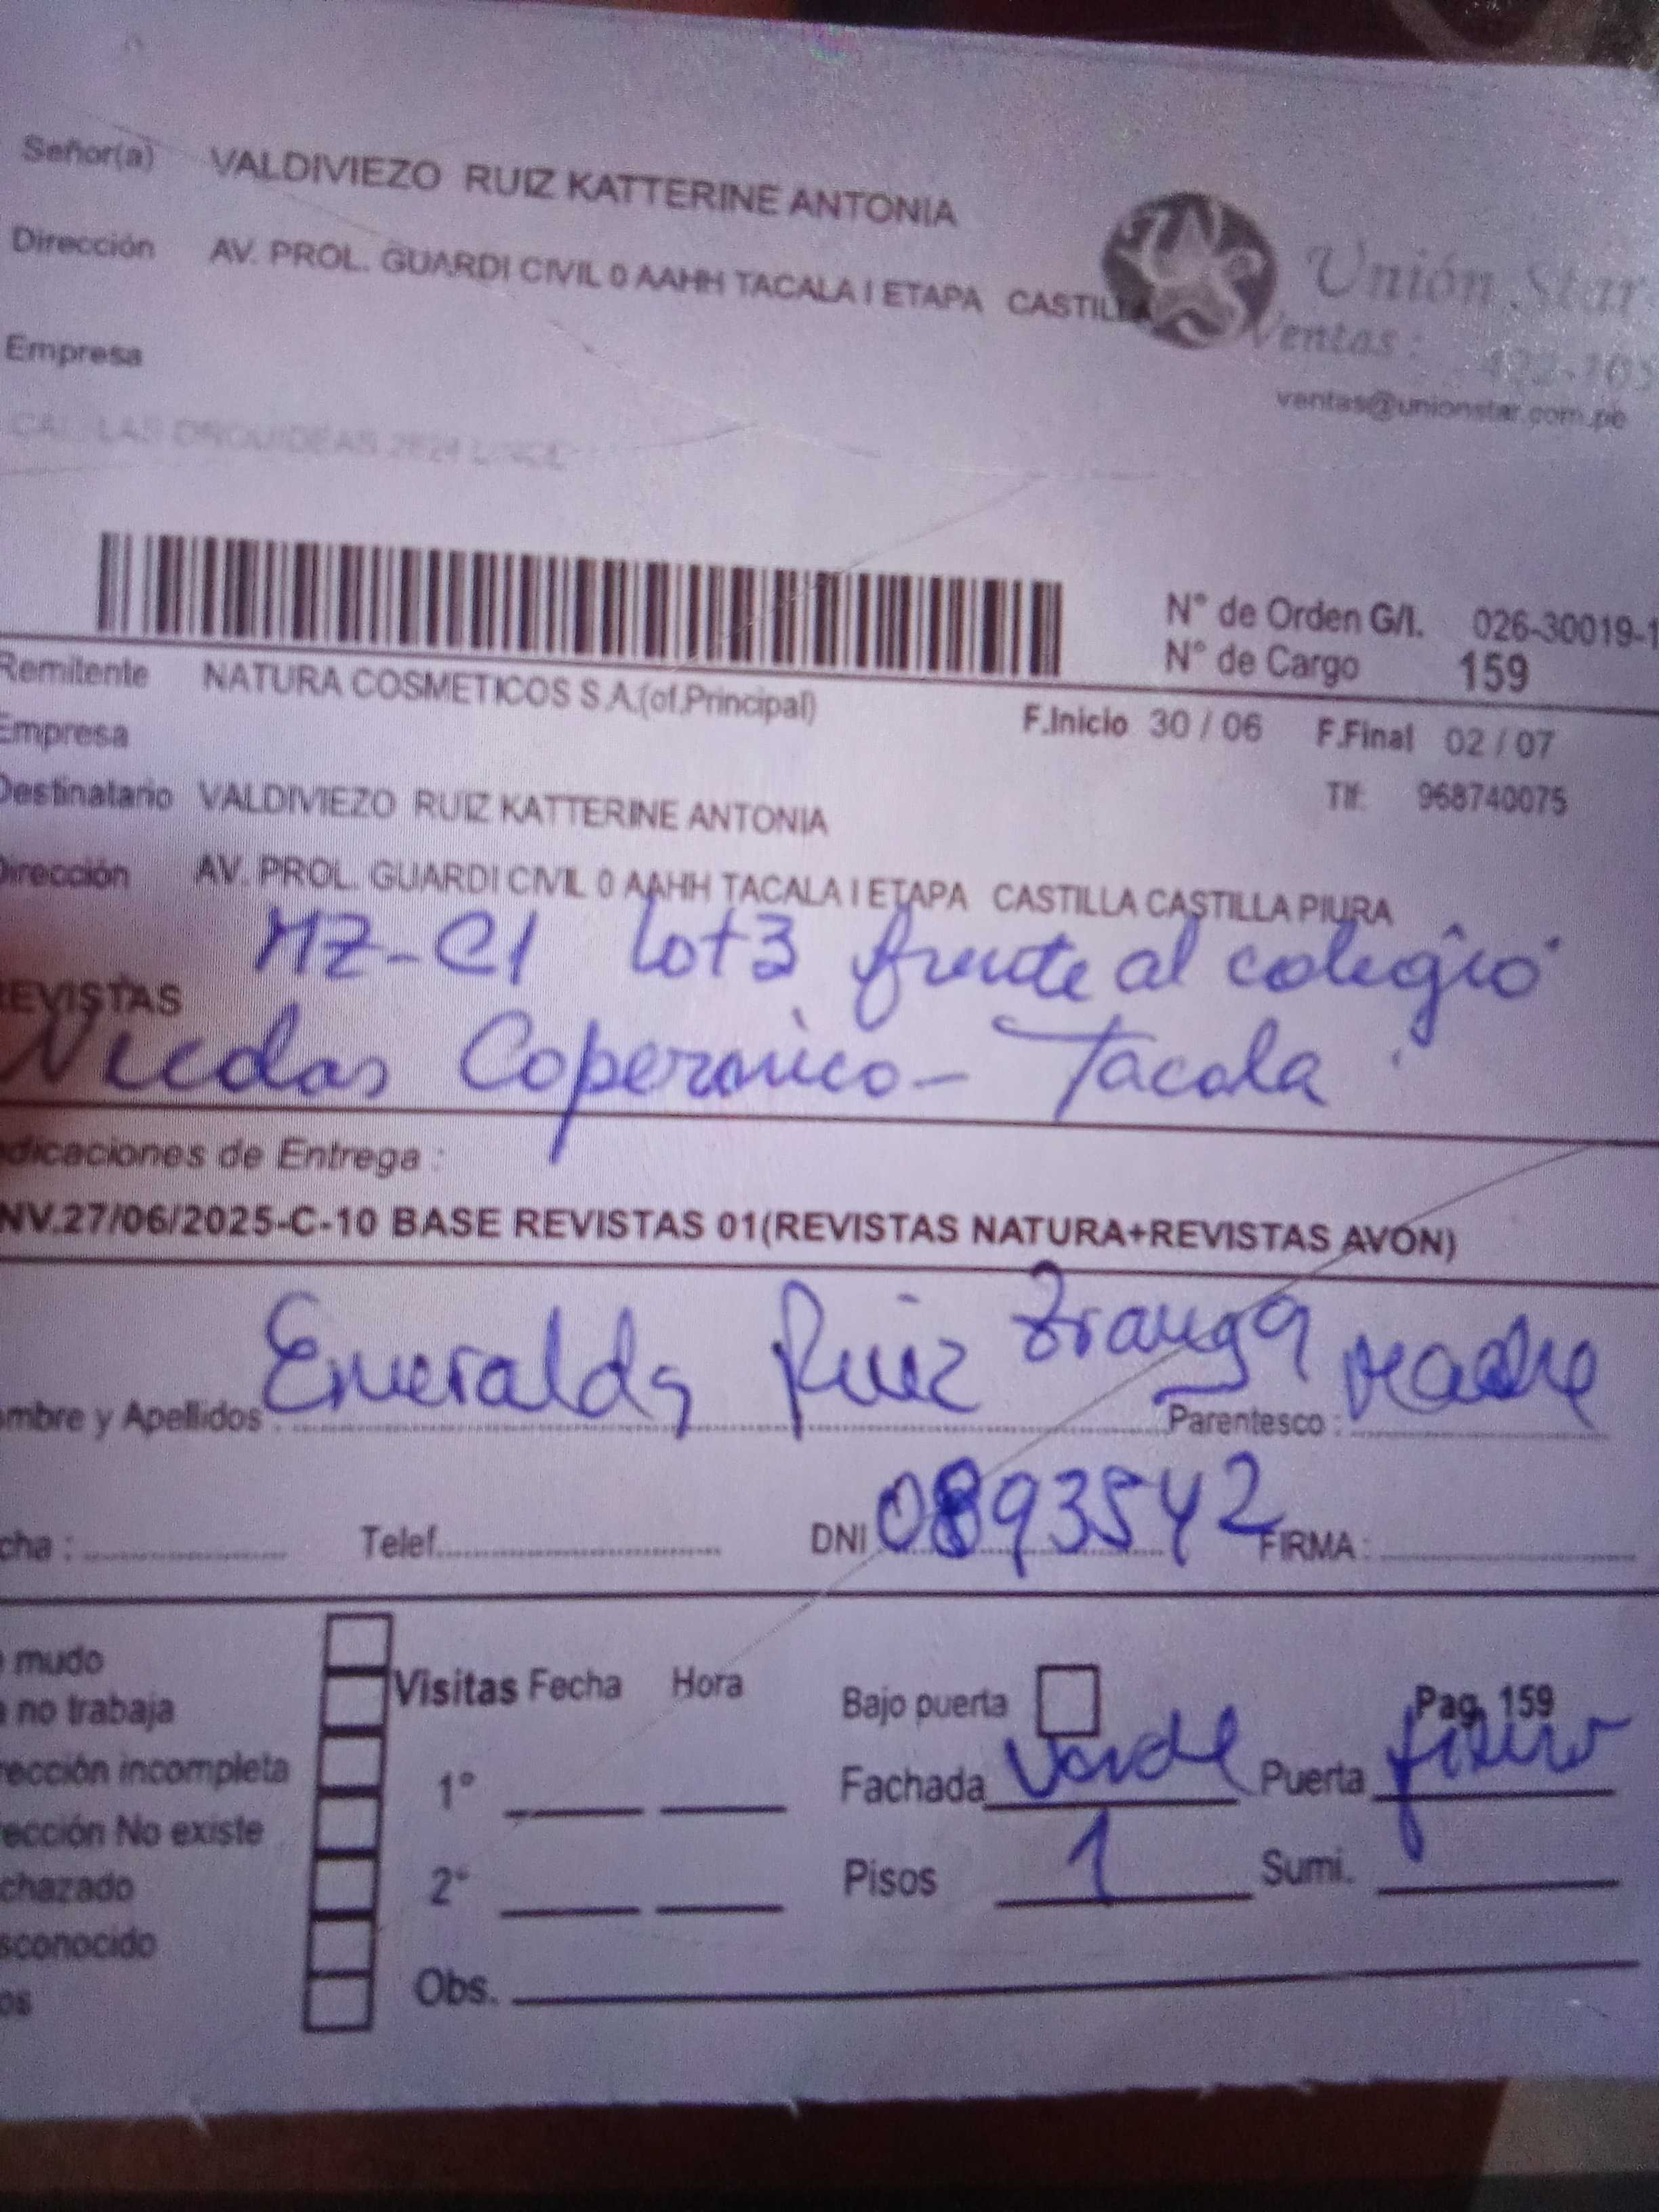 Señor(a) VALDIVIEZO RUIZ KATTERINE ANTONIA
Dirección AV. PROL. GUARDI CIVIL 0 AAHH TACALA I ETAPA CASTILLA
Unión Star
Ventas: 422-105
ventas@unionstar.com.pe
Empresa
LAS ORQUIDEAS
N° de Orden G/I. 026-30019-1
N° de Cargo 159
Remitente NATURA COSMETICOS S.A.(of.Principal)
F.Inicio 30 / 06 F.Final 02 / 07
Empresa
Destinatario VALDIVIEZO RUIZ KATTERINE ANTONIA
Tlf: 968740075
Dirección AV. PROL. GUARDI CIVIL 0 AAHH TACALA I ETAPA CASTILLA CASTILLA PIURA
MZ-C1 Lot 3 frente al colegio
EVISTAS
Nicolas Copernico - Tacala
dicaciones de Entrega :
NV.27/06/2025-C-10 BASE REVISTAS 01(REVISTAS NATURA+REVISTAS AVON)
mbre y Apellidos Ruiz Parentesco : Madre
cha : Telef. DNI 0893542 FIRMA :
mudo
no trabaja
rección incompleta
ección No existe
chazado
sconocido
os
Visitas Fecha Hora
1°
2°
Bajo puerta Pag. 159
Fachada Verde Puerta fierro
Pisos 1 Sumi.
Obs.